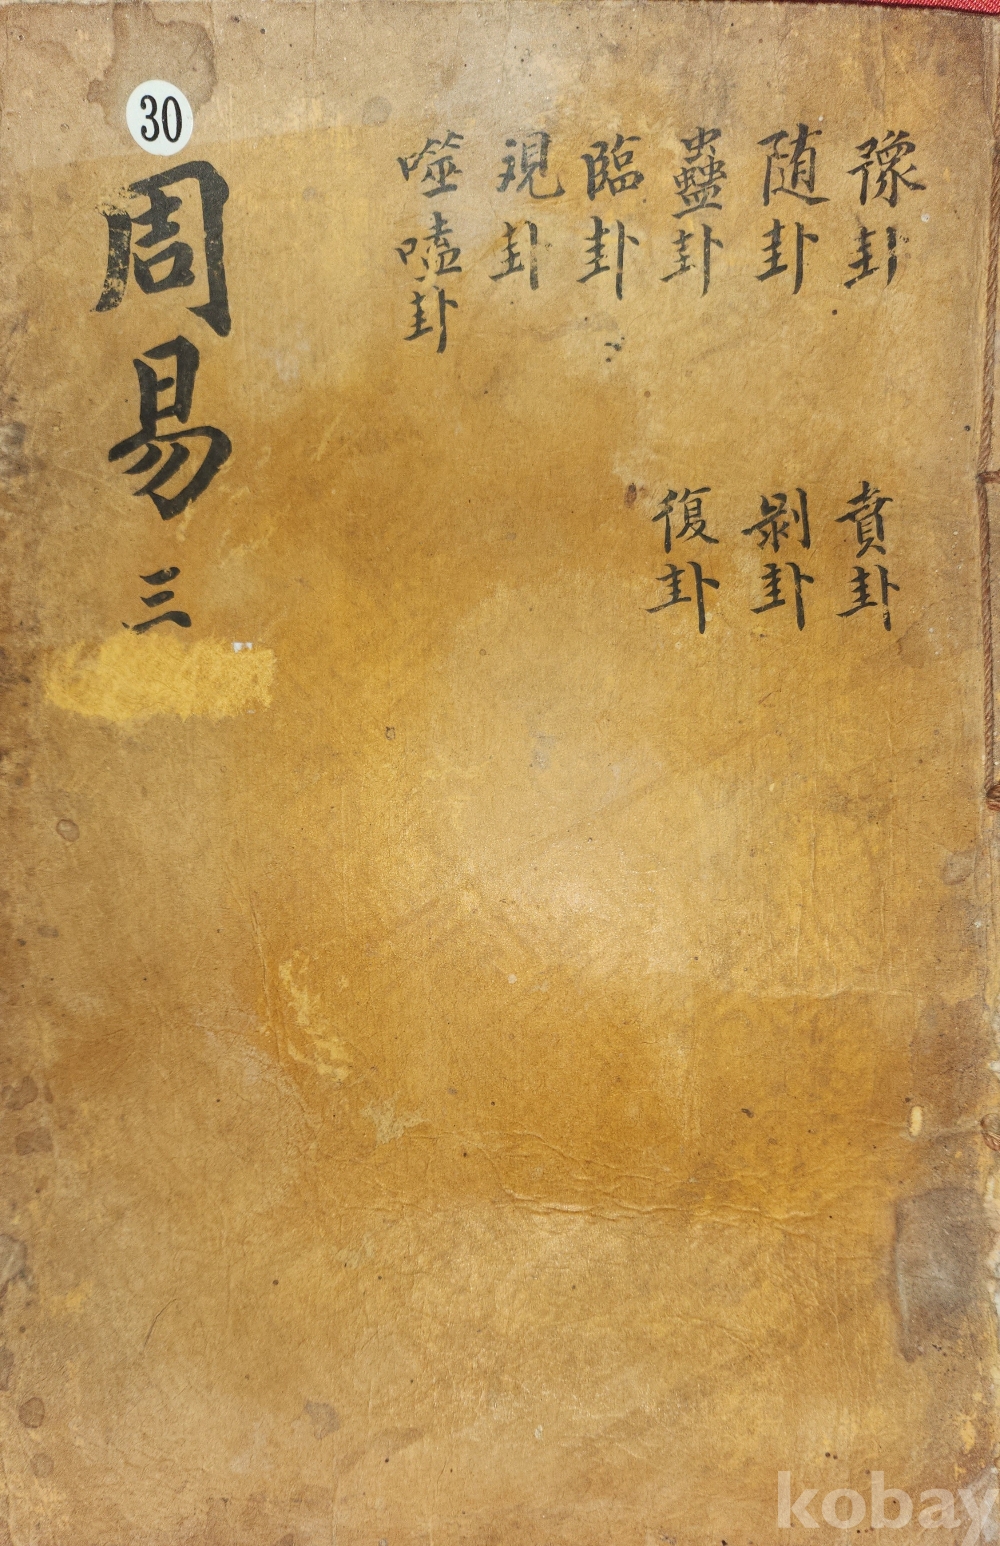 豫卦
随卦
蠱卦
臨卦
現卦
噬嗑卦
賁卦
剝卦
復卦
30
周易 三
kobay